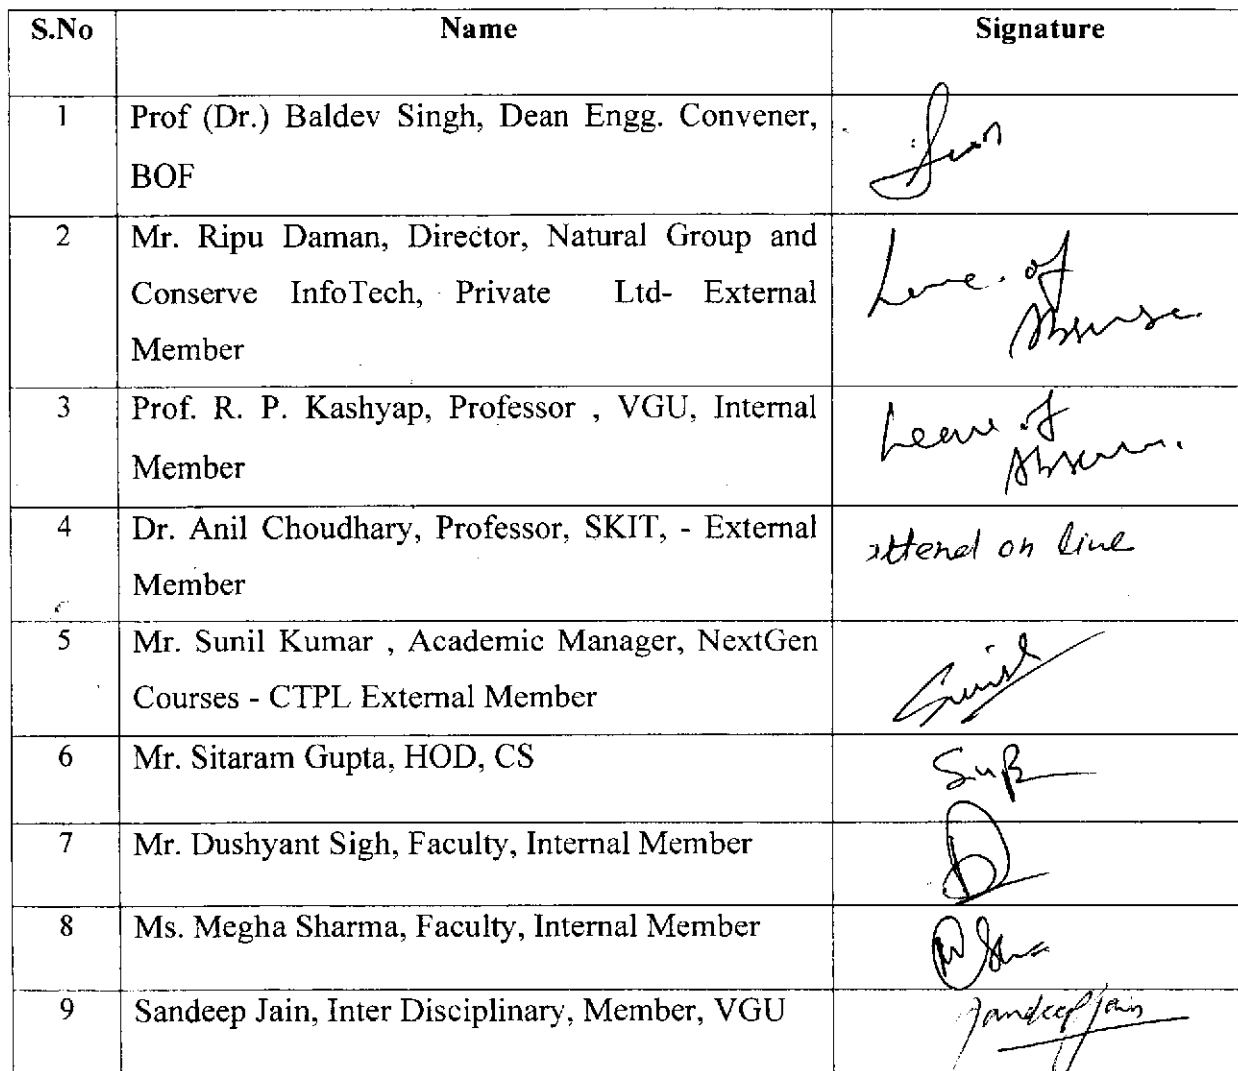 S.No Name Signature
1 Prof (Dr.) Baldev Singh, Dean Engg. Convener,
BOF
2 Mr. Ripu Daman, Director, Natural Group and
Conserve InfoTech, Private Ltd- External
Member
Leave of
Absense.
3 Prof. R. P. Kashyap, Professor , VGU, Internal
Member
Leave of
4 Dr. Anil Choudhary, Professor, SKIT, - External
Member
attend on line
5 Mr. Sunil Kumar , Academic Manager, NextGen
Courses - CTPL External Member
Sunil
6 Mr. Sitaram Gupta, HOD, CS
7 Mr. Dushyant Sigh, Faculty, Internal Member
8 Ms. Megha Sharma, Faculty, Internal Member
9 Sandeep Jain, Inter Disciplinary, Member, VGU
Sandeep Jain